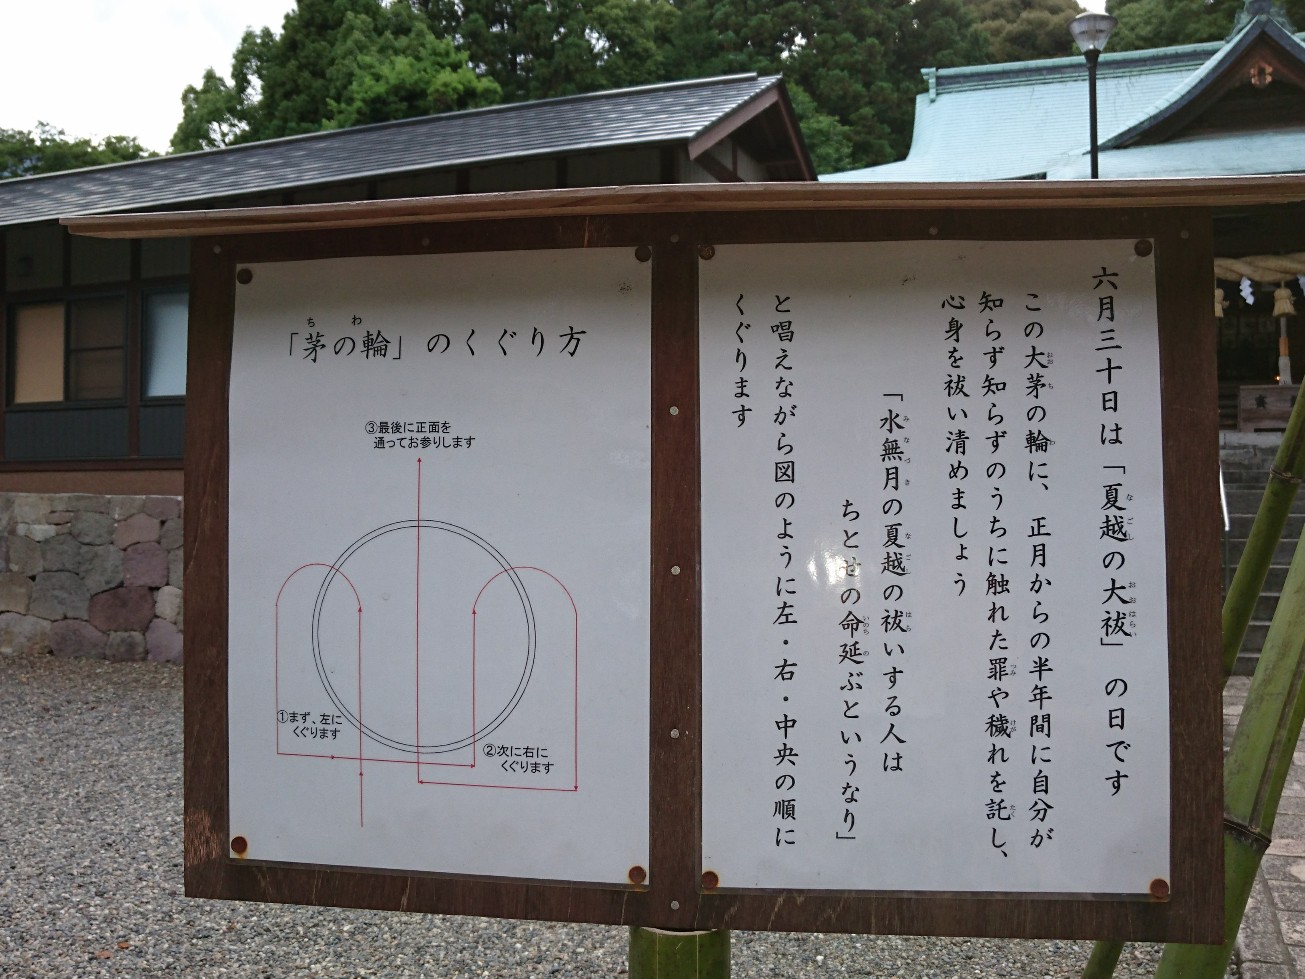 六月三十日は「夏越の大祓」の日です
この大茅の輪に、正月からの半年間に自分が
知らず知らずのうちに触れた罪や穢れを託し、
心身を祓い清めましょう
「水無月の夏越の祓いする人は
ちとせの命延ぶというなり」
と唱えながら図のように左・右・中央の順に
くぐります
「茅の輪」のくぐり方
③最後に正面を
通ってお参りします
①まず、左に
くぐります
②次に右に
くぐります